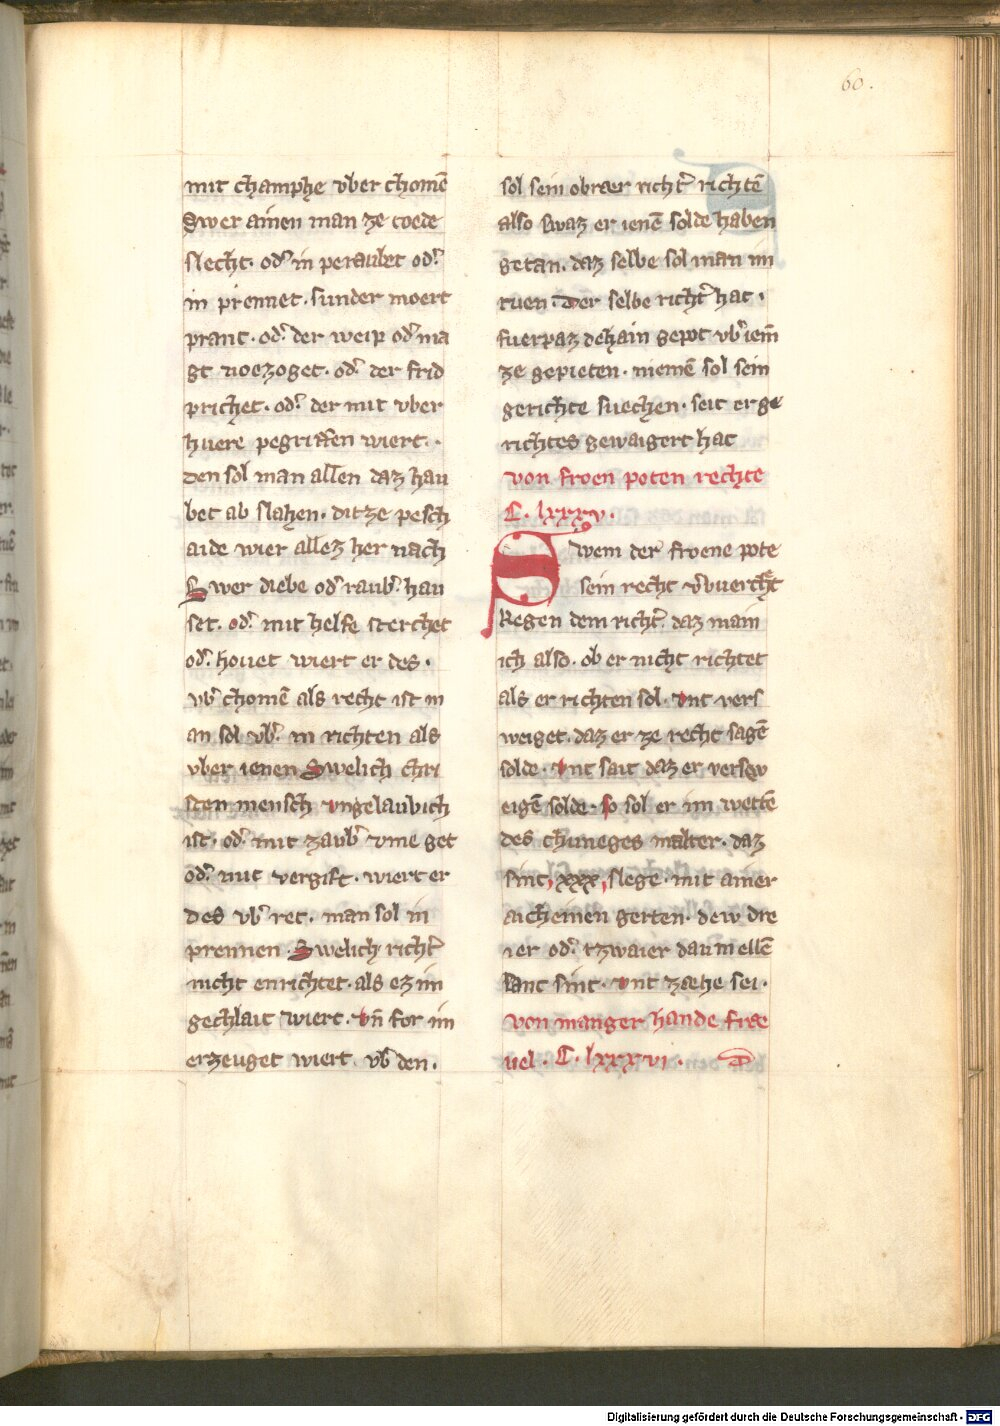 60.
mit champhe vber chomē
Swer ainen man ze toede
slecht. od᷑ in peraubet od᷑
in prennet. sunder moert
prant. od᷑ der weip od᷑ ma
gt noezoget. od᷑ der frid
prichet. od᷑ der mit vber
huere pegriffen wiert.
den sol man allen daz hau
bet ab slahen. ditze pesch
aide wier allez her nach
Swer diebe od᷑ raub᷑ hau
set. od᷑ mit helfe sterchet
od᷑ houet wiert er des.
vb᷑ chomē als recht ist m
an sol vb᷑ in richten als
vber ienen Swelich chri
sten mensch vngelaubich
ist. od᷑ mit zaub᷑ vme get
od᷑ mit vergift. wiert er
des vb᷑ ret. man sol in
prennen. Swelich richt᷑
nicht enrichtet. als ez im
gechlait wiert. vn̄ for im
erzeuget wiert. vb᷑ den.
sol sein obraer richt᷑ richtē
also swaz er ienē solde haben
getan. daz selbe sol man im
tuen. Der selbe richt᷑ hat.
fuerpaz dehain gepot vb᷑ iem̄
ze gepieten. niemē sol sein
gerichte suechen. seit er ge
richtes gewaigert hat
von froen poten rechte
C. lxxxv.
Swem der froene pote
sein recht v᷑buercht
Regen dem richt᷑ daz main
ich also. ob er nicht richtet
als er richten sol. vnt vers
weiget. daz er ze recht sagē
solde. vnt sait daz er versw
eigē solde. so sol er im wettē
des chuneges malter. daz
sint, xxx, slege. mit ainer
aicheinen gerten. dew dre
ier od᷑ tzwaier daumellē
lanc sint. vnt zaehe sei.
von manger hande frae
uel. C. lxxxvi.